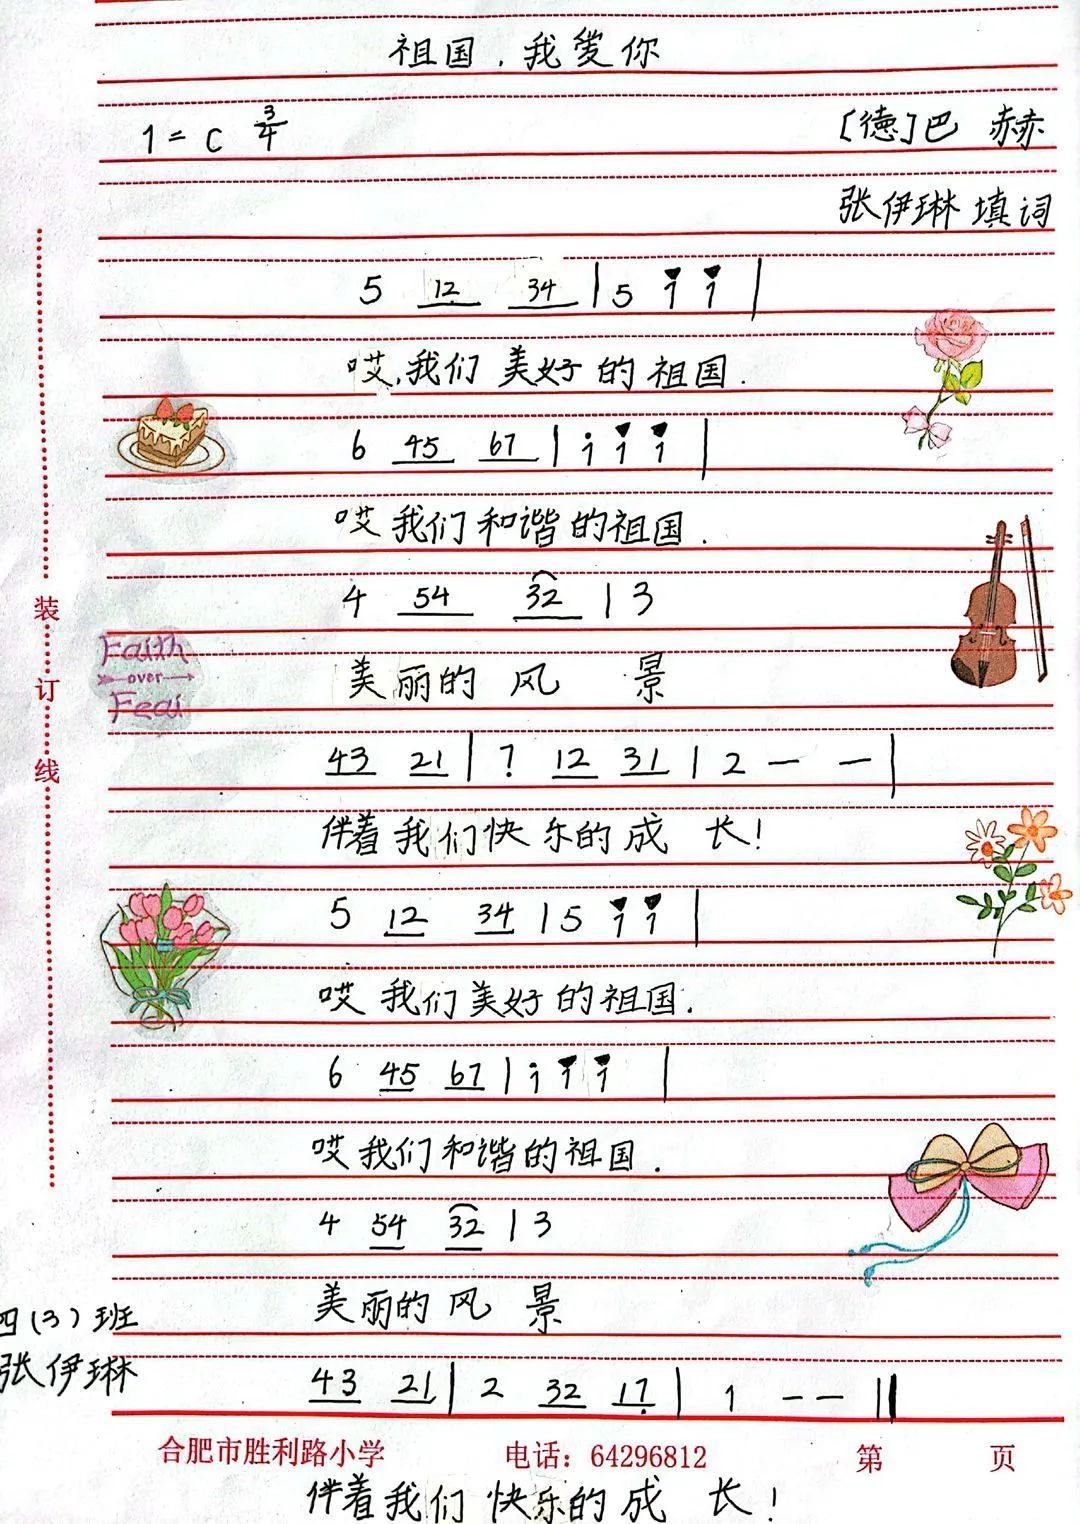 祖国，我爱你
1=C 3/4
[德]巴 赫
张伊琳 填词
5 12 34 | 5 i i |
哎,我们 美好 的 祖国.
6 45 67 | i i i |
哎 我们 和谐 的 祖国.
4 54 32 | 3
美丽的 风 景
43 21 | 7 12 31 | 2 — — |
伴着我们快乐的成 长!
5 12 34 | 5 i i |
哎 我们美好的祖国.
6 45 67 | i i i |
哎 我们和谐的祖国.
4 54 32 | 3
美丽的 风 景
43 21 | 2 32 17 | 1 — — ‖
伴着我们 快乐的 成 长!
四(3)班
张伊琳
装订线
Faith
over
Fear
合肥市胜利路小学 电话：64296812 第 页